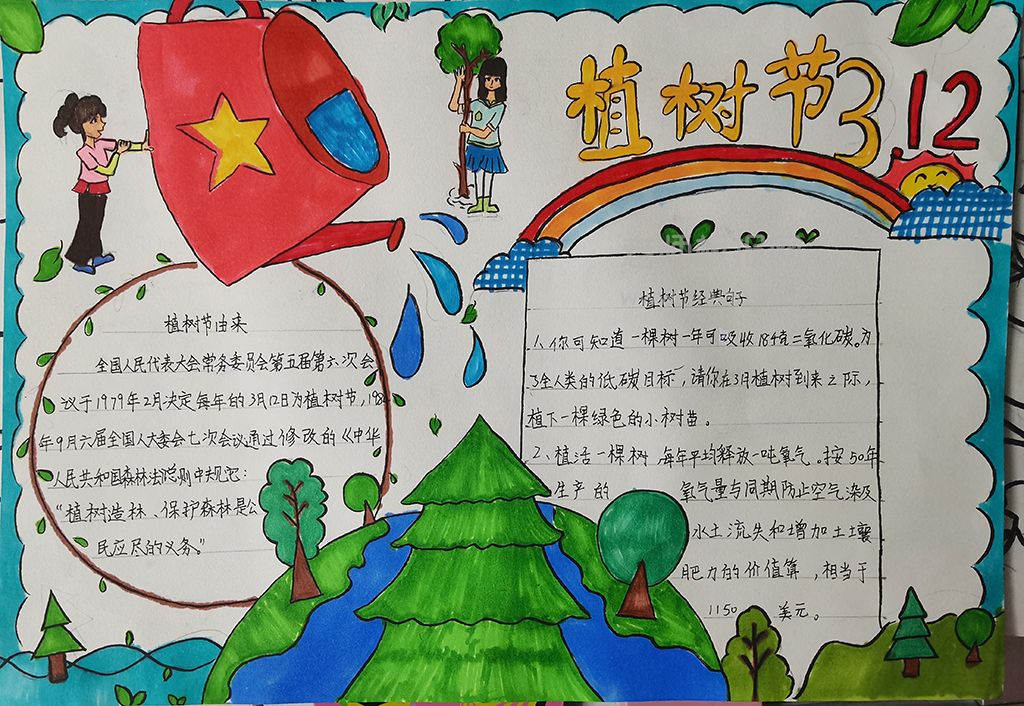 植树节3.12
植树节由来
全国人民代表大会常务委员会第五届第六次会
议于1979年2月决定每年的3月12日为植树节,198
年9月六届全国人大委会七次会议通过修改的《中华
人民共和国森林法》总则中规定:
“植树造林、保护森林是公
民应尽的义务。”
植树节经典句子
1、你可知道一棵树一年可吸收184克二氧化碳。为
了全人类的低碳目标,请你在3月植树到来之际,
植下一棵绿色的小树苗。
2、植活一棵树,每年平均释放一吨氧气。按50年
生产的 氧气量与同期防止空气染及
水土流失和增加土壤
肥力的价值算,相当于
1150 美元。